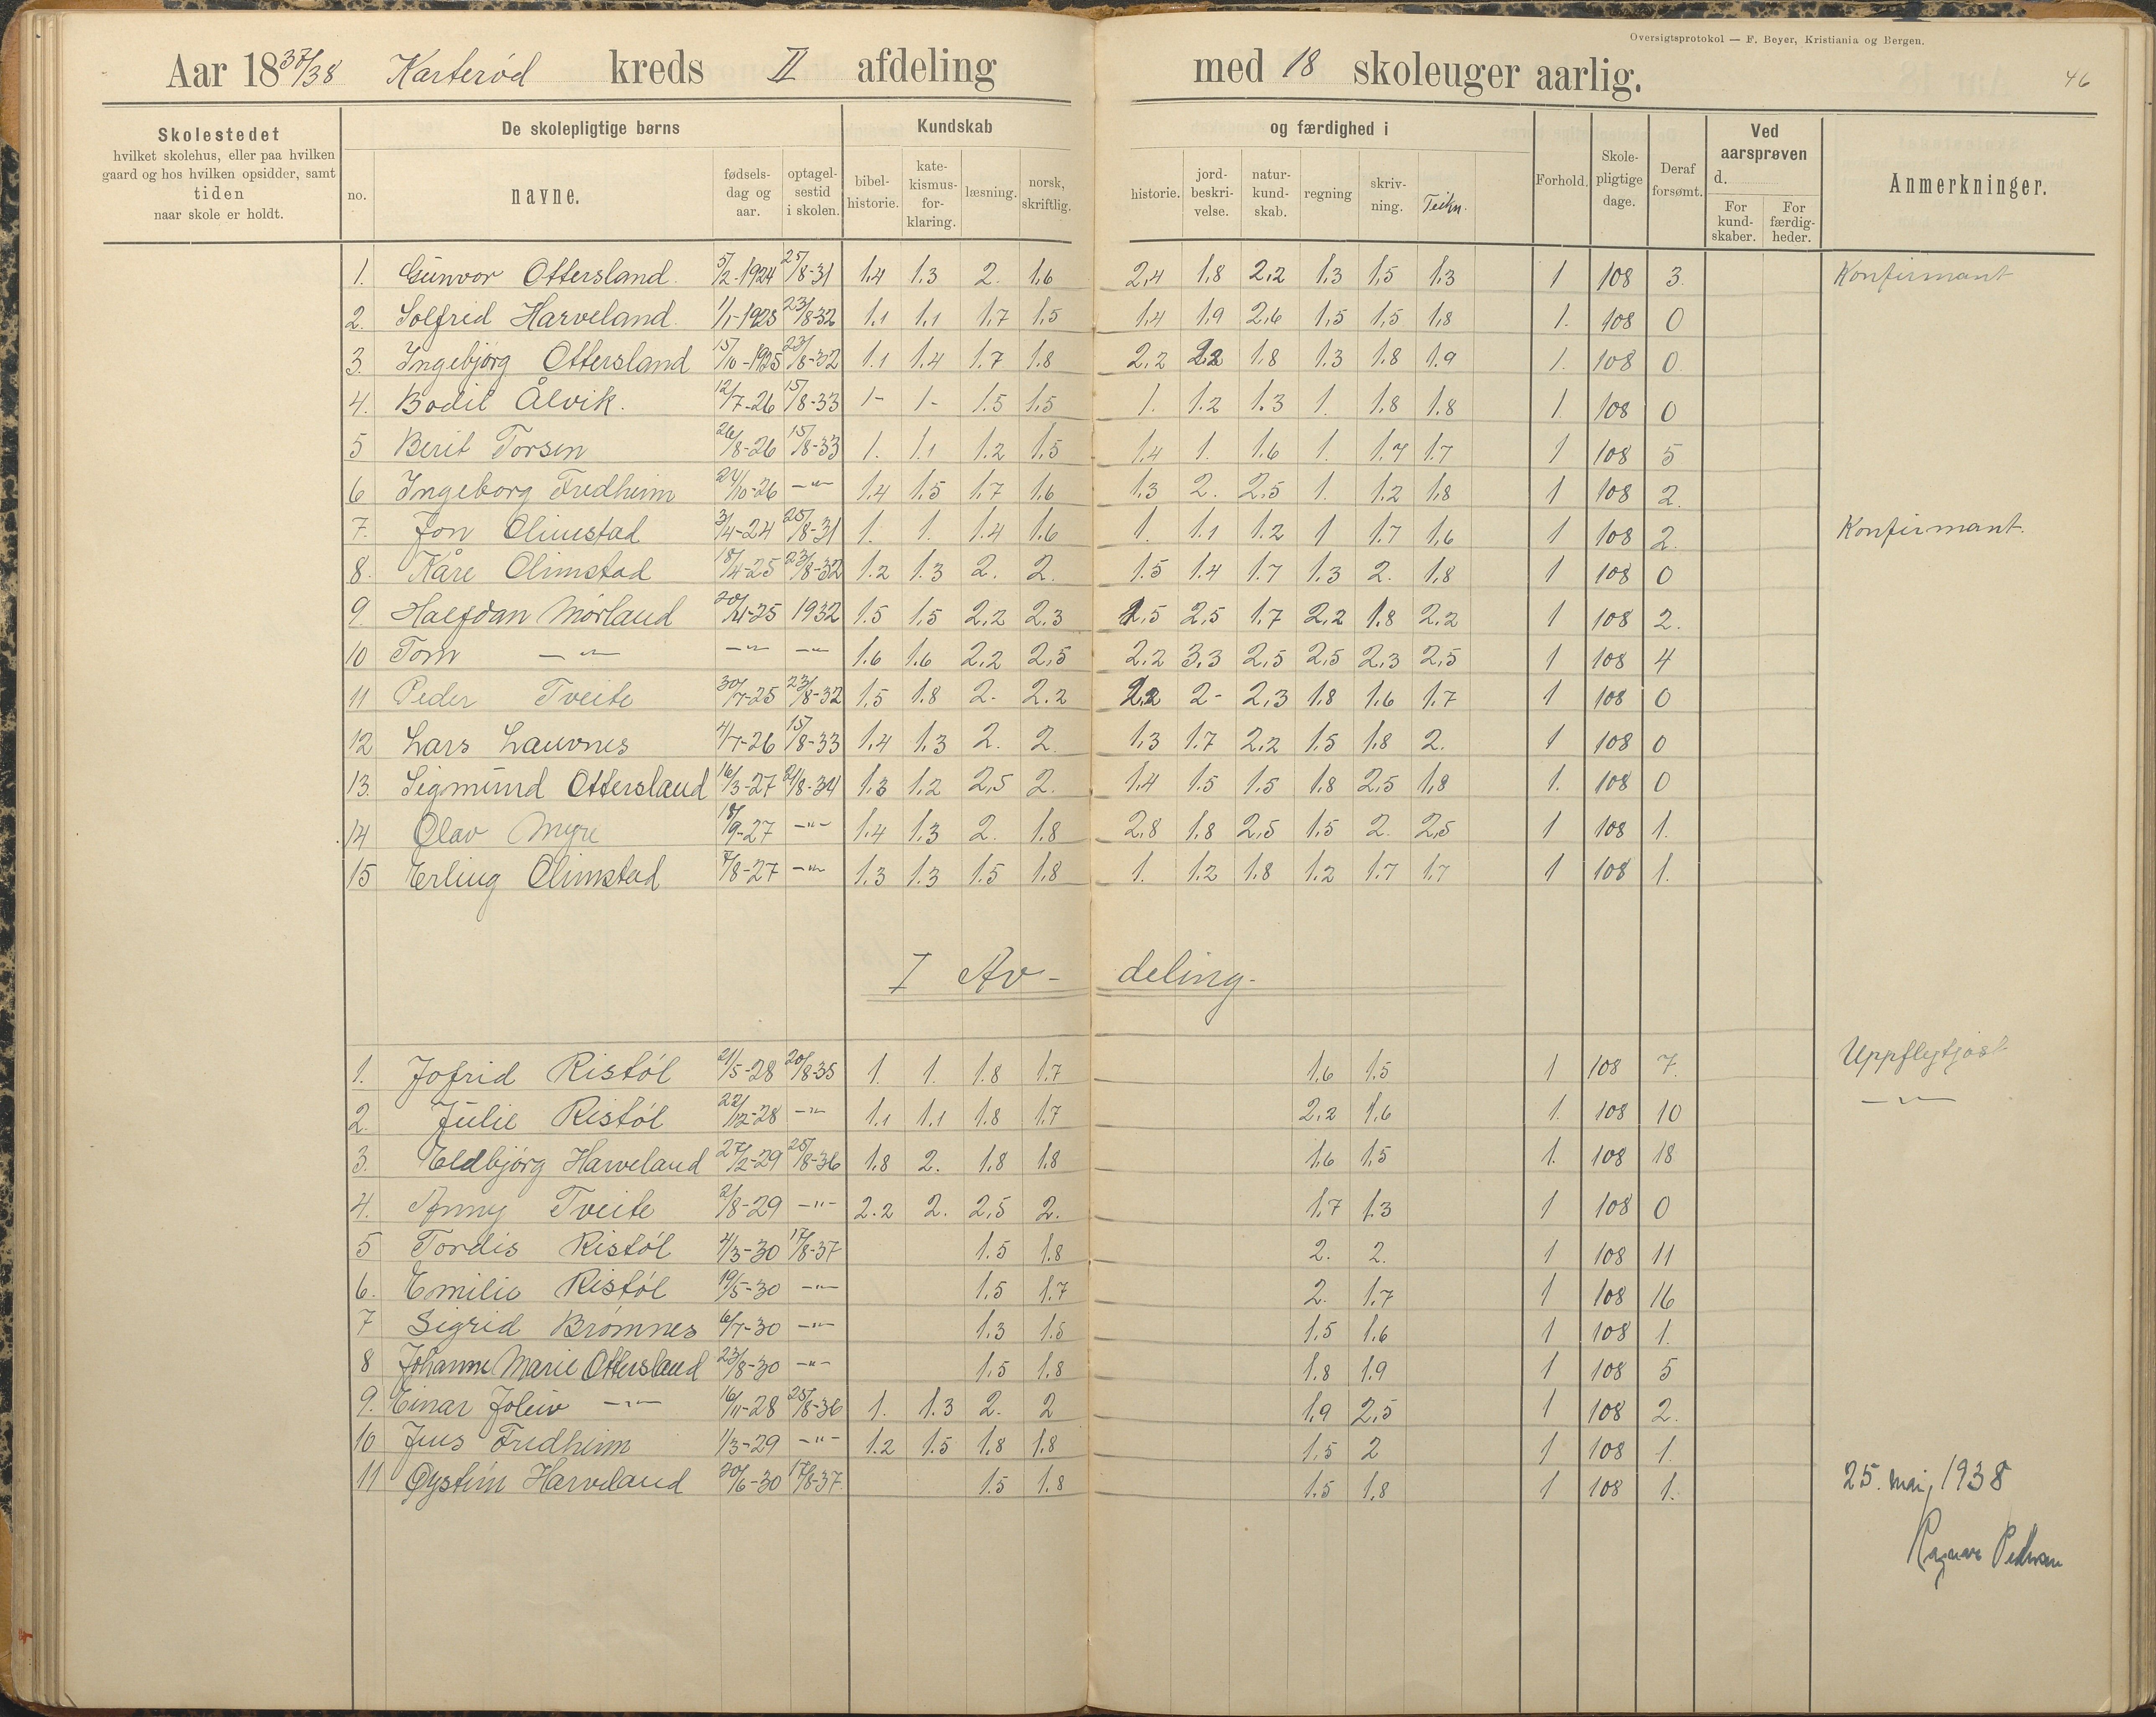 Oversigtsprotokol — F. Beyer, Kristiania og Bergen.
Aar 1837/38 Karterød kreds II afdeling med 18 skoleuger aarlig. 46
Skolestedet hvilket skolehus, eller paa hvilken gaard og hos hvilken opsidder, samt tiden naar skole er holdt.
De skolepligtige børns Kundskab og færdighed i
no. navne. fødsels-dag og aar. optagel-sestid i skolen. bibel-historie. kate-kismus-for-klaring. læsning. norsk, skriftlig. historie. jord-beskri-velse. natur-kund-skab. regning skriv-ning. Teikn. Forhold. Skole-pligtige dage. Deraf forsømt. Ved aarsprøven d. For kund-skaber. For færdig-heder. Anmerkninger.
1. Gunvor Ottersland. 5/2-1924 25/8-31 1,4 1.3 2. 1,6 2,4 1,8 2,2 1,3 1,5 1,3 1 108 3. Konfirmant
2. Solfrid Harveland. 1/1-1925 23/8-32 1.1 1.1 1,7 1,5 1,4 1,9 2,6 1,5 1,5 1,8 1. 108 0
3. Ingebjørg Ottersland 15/10-1925 23/8-32 1.1 1.4 1.7 1.8 2,2 2.2 1.8 1.3 1.8 1.9 1. 108 0.
4. Bodil Ålvik. 12/7-26 15/8-33 1- 1- 1.5 1,5 1. 1.2 1.3 1. 1,8 1.8 1. 108 0
5 Berit Torsen 26/8-26 15/8-33 1. 1.1 1.2 1.5 1.4 1. 1.6 1. 1.7 1.7 1 108 5
6 Ingeborg Fredheim 24/10-26 -"- 1.4 1.5 1.7 1.6 1.3 2. 2.5 1. 1.2 1,8 1 108 2.
7. Jon Olimstad 3/4-24 25/8-31 1. 1. 1.4 1.6 1. 1.1 1.2 1 1.7 1,6 1 108 2. Konfirmant.
8. Kåre Olimstad 18/4-25 23/8-32 1.2 1.3 2. 2. 1.5 1.4 1.7 1.3 2. 1,8 1 108 0
9. Halfdan Mørland 20/11-25 1932 1.5 1.5 2.2 2.3 1.5 2,5 1.7 2,2 1.8 2.2 1 108 2.
10 Tom -"- -"- -"- 1.6 1.6 2,2 2,5 2.2 3,3 2,5 2,5 2,3 2,5 1 108 4
11 Peder Tveite 30/7-25 23/8-32 1.5 1.8 2- 2.2 2,2 2- 2,3 1,8 1,6 1.7 1 108 0
12 Lars Lauvnes 4/7-26 15/8-33 1,4 1,3 2. 2. 1,3 1.7 2.2 1.5 1.8 2. 1 108 0
13. Sigmund Ottersland 16/3-27 21/8-34 1.3 1.2 2,5 2. 1.4 1.5 1.5 1.8 2,5 1,8 1. 108 0
14 Olav Myre 18/9-27 -"- 1.4 1.3 2. 1.8 2,8 1.8 2,5 1.5 2. 2,5 1 108 1.
15 Erling Olimstad 7/8-27 -"- 1.3 1.3 1.5 1.8 1. 1.2 1.8 1.2 1.7 1.7 1 108 1.
I Av-deling.
1. Jofrid Ristøl 21/5-28 20/8-35 1. 1. 1.8 1.7 1,6 1.5 1 108 7.
2. Julie Ristøl 22/12-28 -"- 1.1 1.1 1.8 1.7 2,2 1,6 1. 108 10 -"-
3. Eldbjørg Harveland 27/2-29 25/8-36 1.8 2. 1.8 1.8 1,6 1,5 1. 108 18
4. Anny Tveite 2/8-29 -"- 2.2 2. 2,5 2. 1.7 1.3 1 108 0
5 Tordis Ristøl 4/3-30 17/8-37 1.5 1.8 2. 2. 1 108 11
6. Emilie Ristøl 19/5-30 -"- 1.5 1.7 2. 1.7 1 108 16
7 Sigrid Brømnes 6/7-30 -"- 1.3 1.5 1.5 1.6 1 108 1.
8 Johanne Marie Ottersland 23/8-30 -"- 1.5 1.8 1.8 1.9 1 108 5
9. Einar Joleiv -"- 16/11-28 25/8-36 1. 1.3 2. 2 1,9 2,5 1 108 2.
10 Jens Fredheim 1/3-29 -"- 1.2 1.5 1.8 1.8 1.5 2 1 108 1.
11 Øystein Harveland 20/6-30 17/8-37. 1.5 1.8 1.5 1,8 1 108 1.
25. mai, 1938
Ragnar Pedersen